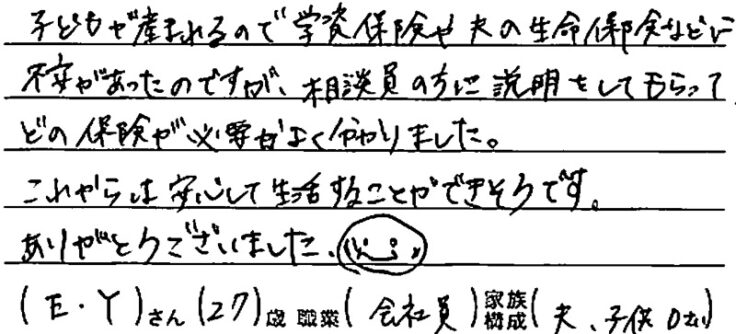 子どもが産まれるので学資保険や夫の生命保険などに
不安があったのですが、相談員の方に説明をしてもらって
どの保険が必要かよく分かりました。
これからは安心して生活することができそうです。
ありがとうございました。
(E・Y)さん(27)歳 職業(会社員)家族構成(夫、子供0才)